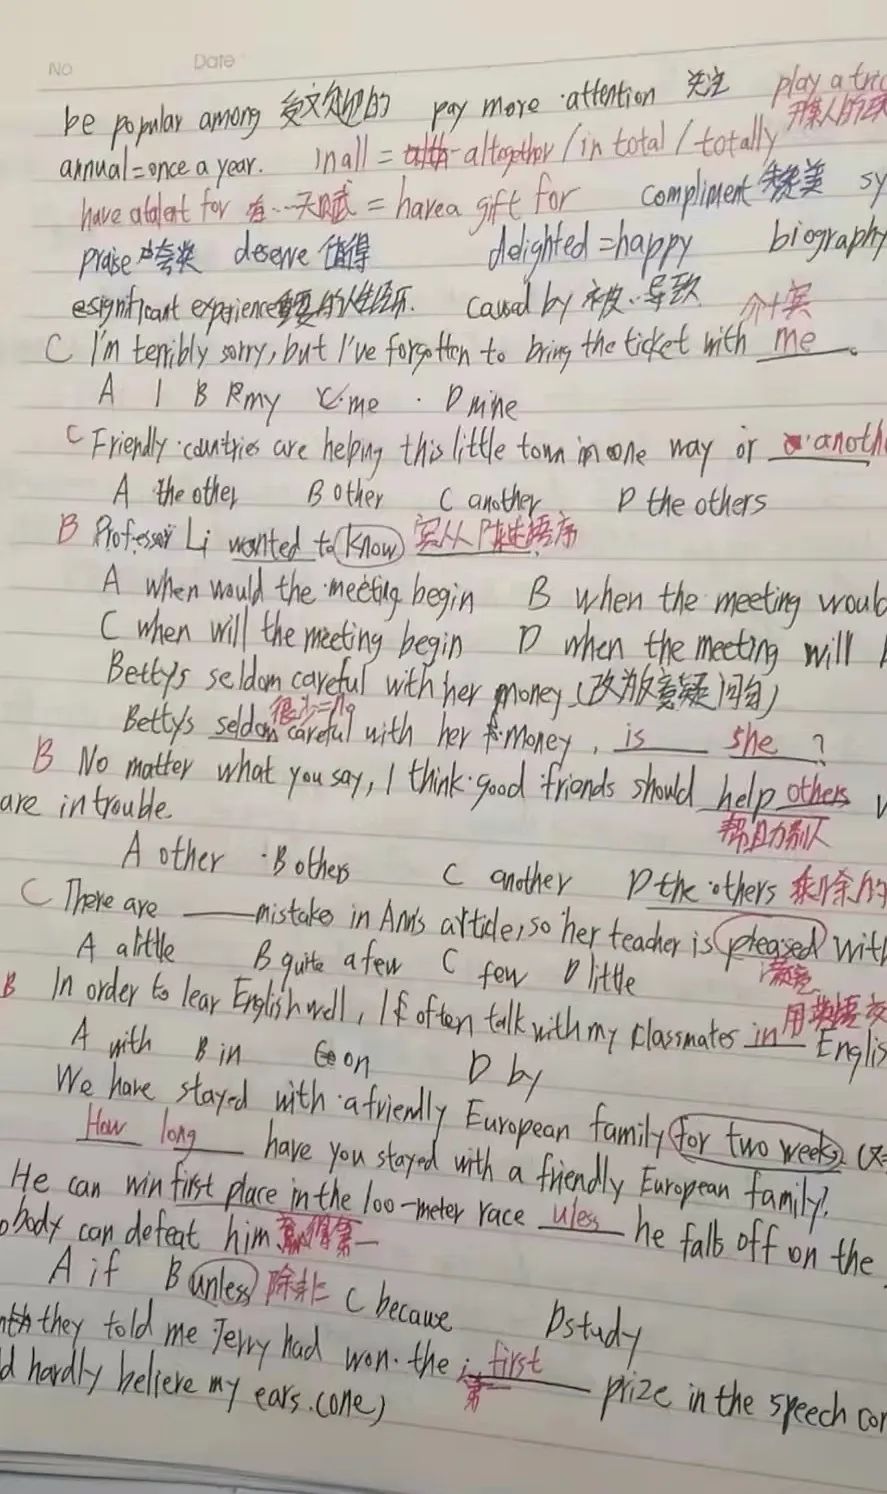 No Date
be popular among 受欢迎的 pay more attention 关注 play a tric
开某人的玩
annual=once a year. Inall = altogether / in total / totally
have atalent for 有…天赋 = havea gift for compliment 赞美 sy
praise 夸奖 deserve 值得 delighted=happy biography
esignificant experience重要的人生经历. caused by 被…导致
介+宾
C I'm terribly sorry, but I've forgotten to bring the ticket with me.
A I B my C me D mine
C Friendly countries are helping this little town in one way or anoth
A the other B other C another D the others
B Professor Li wanted to know 宾从陈述语序
A when would the meeting begin B when the meeting would
C when will the meeting begin D when the meeting will
Betty's seldom careful with her money (改为反意疑问句)
很少=
Betty's seldom careful with her money, is she ?
B No matter what you say, I think good friends should help others w
are in trouble. 帮助别人
A other B others C another D the others 剩余的
C There are ____ mistake in Ann's article, so her teacher is pleased with
满意
A alittle B quite a few C few D little
用英语交
B In order to lear English well, I often talk with my classmates in Englis
A with B in C on D by
We have stayed with a friendly European family for two weeks. (对
How long have you stayed with a friendly European family?
He can win first place in the 100-meter race uless he falls off on the
obody can defeat him 赢得第一
A if B unless 除非 C because D study
nth they told me Jerry had won the first prize in the speech con
第一
d hardly believe my ears. (one)